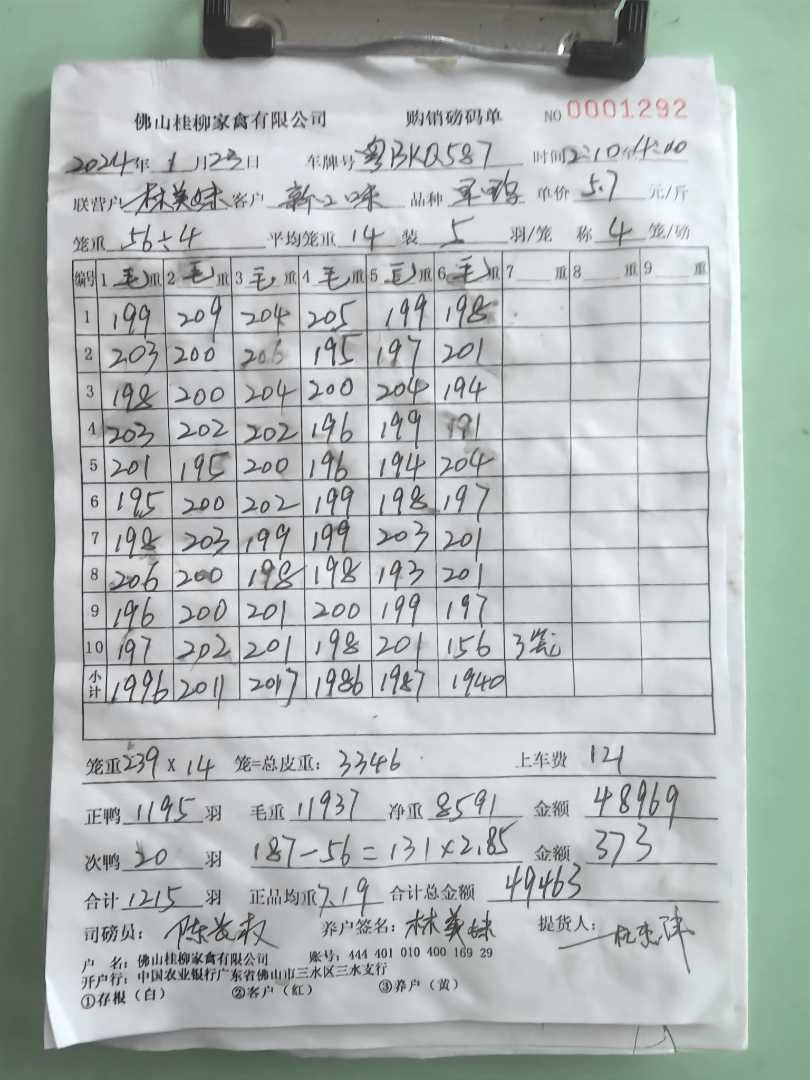 佛山桂柳家禽有限公司 购销磅码单 NO 0001292
2024年 1 月 23日 车牌号 粤BKQ587 时间 12:10 4:00
联营户 林美妹 客户 新口味 品种 单价 5.7 元/斤
笼重 56÷4 平均笼重 14 装 5 羽/笼 称 4 笼/磅
编号 1 毛重 2 毛重 3 毛重 4 毛重 5 毛重 6 毛重 7 重 8 重 9 重
1 199 209 204 205 199 198
2 203 200 206 195 197 201
3 198 200 204 200 204 194
4 203 202 202 196 199 191
5 201 195 200 196 194 204
6 195 200 202 199 198 197
7 198 203 199 199 203 201
8 206 200 198 198 193 201
9 196 200 201 200 199 197
10 197 202 201 198 201 156 3笼
小计 1996 2011 2017 1986 1987 1940
笼重 239 × 14 笼=总皮重: 3346 上车费 121
正鸭 1195 羽 毛重 11937 净重 8591 金额 48969
次鸭 20 羽 187-56=131×2.85 金额 373
合计 1215 羽 正品均重 7.19 合计总金额 49463
司磅员: 养户签名: 林美妹 提货人:
户 名: 佛山桂柳家禽有限公司 账号: 444 401 010 400 169 29
开户行: 中国农业银行广东省佛山市三水区三水支行
①存根(白) ②客户(红) ③养户(黄)